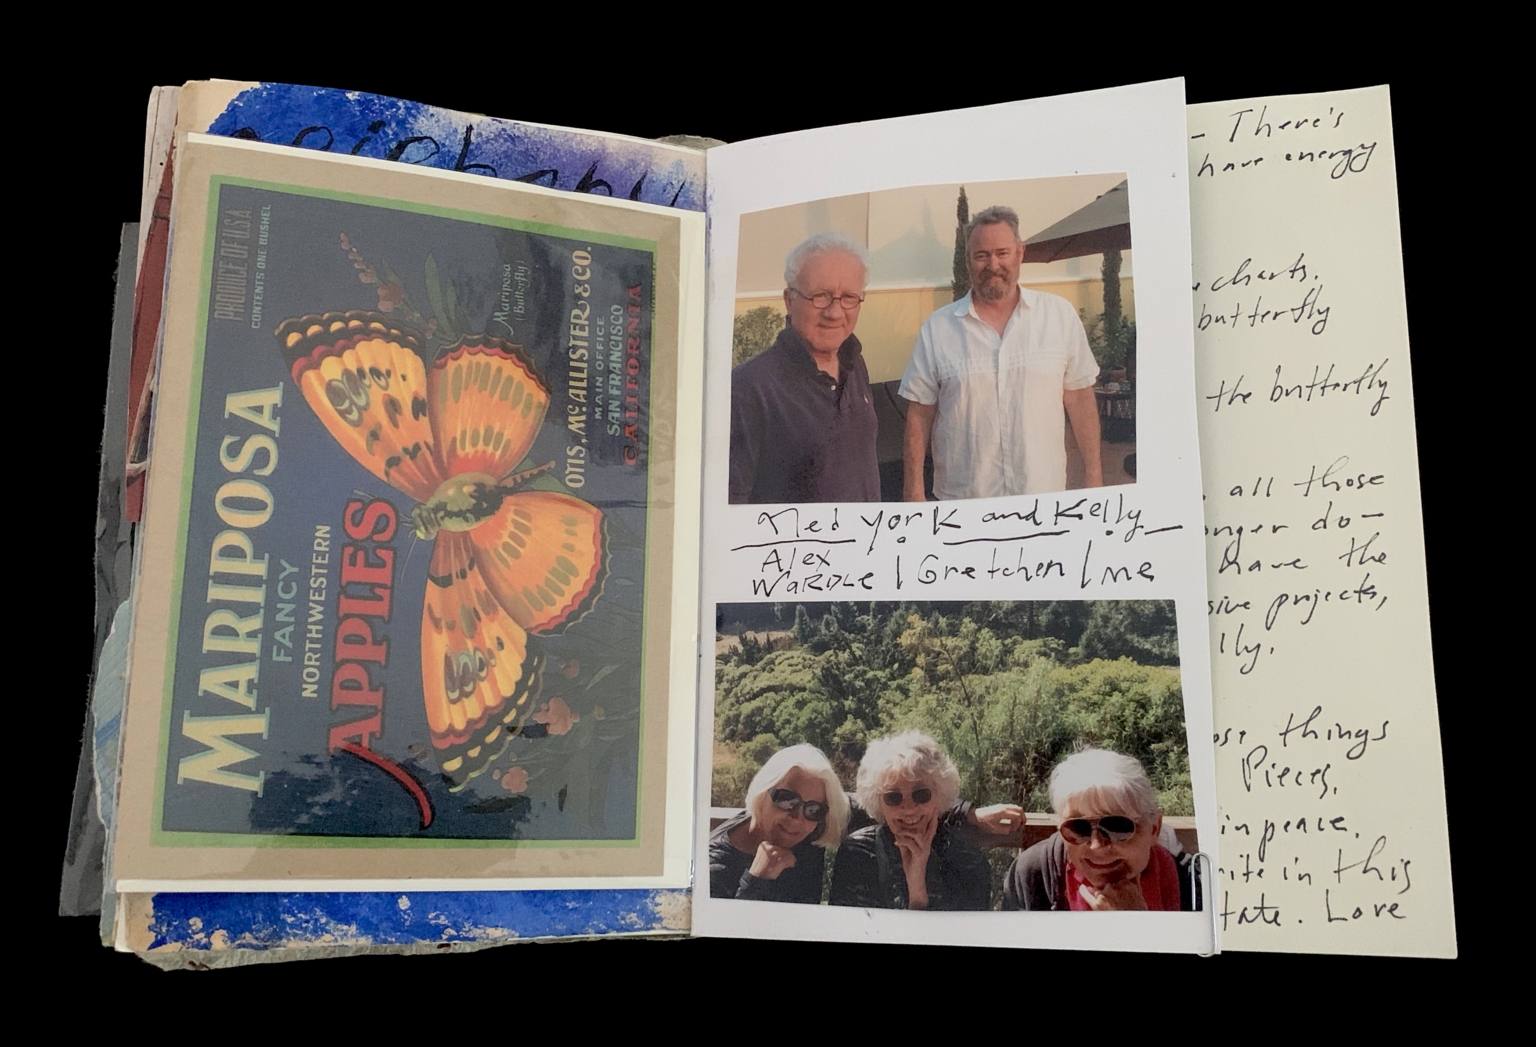 epiphany
PRODUCE OF U.S.A.
CONTENTS ONE BUSHEL
MARIPOSA
FANCY
NORTHWESTERN
APPLES
Mariposa
(Butterfly)
OTIS, McALLISTER & CO.
MAIN OFFICE
SAN FRANCISCO
CALIFORNIA
Ned York and Kelly
Alex
WaRDLe | Gretchen | me
- There's
have energy
charts.
butterfly
the butterfly
all those
onger do-
have the
sive projects,
lly.
things
Pieces.
in peace.
rite in this
tate. Love